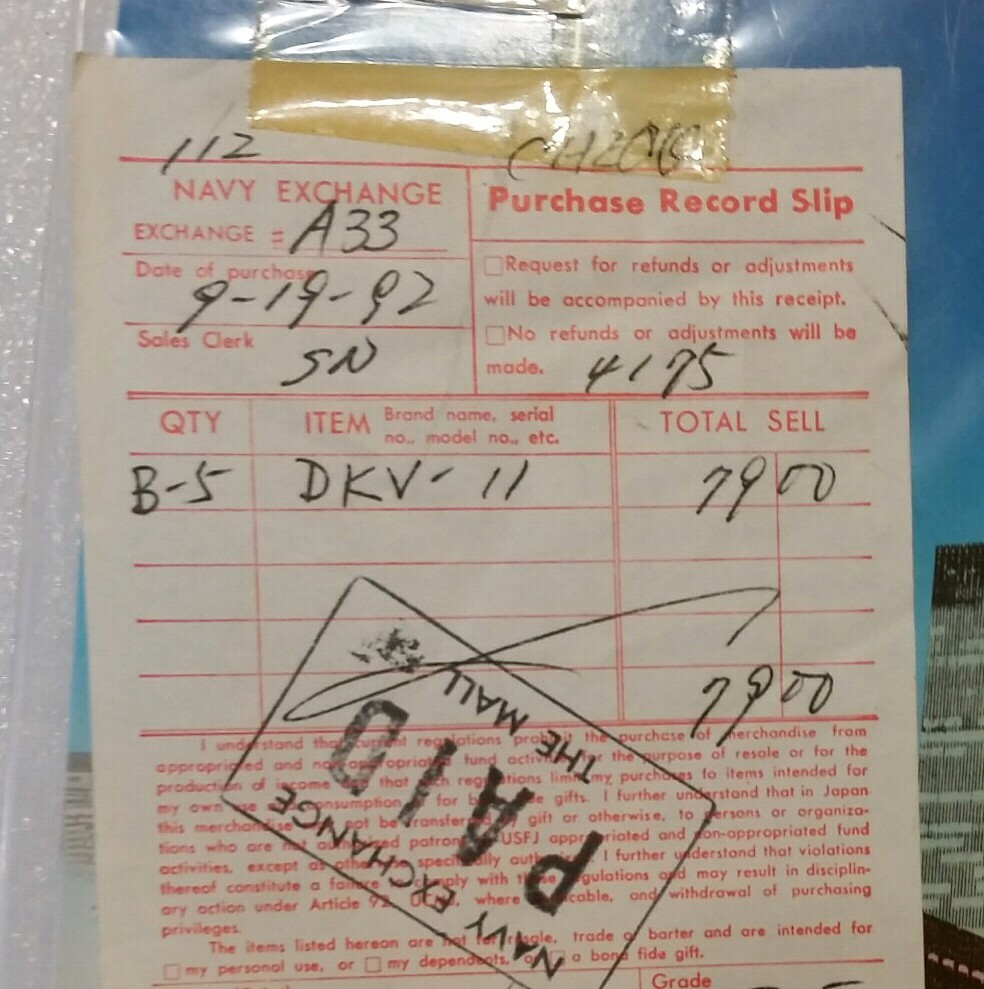 112
NAVY EXCHANGE
EXCHANGE # A33
Date of purchase
9-19-92
Sales Clerk
SN
Purchase Record Slip
☐Request for refunds or adjustments
will be accompanied by this receipt.
☐No refunds or adjustments will be
made. 4175
QTY ITEM Brand name, serial no., model no., etc. TOTAL SELL
B-5 DKV-11 79 00
79 00
NAVY EXCHANGE
PAID
THE MALL
I understand that current regulations prohibit the purchase of merchandise from
appropriated and non-appropriated fund activities for the purpose of resale or for the
production of income and that such regulations limit my purchases to items intended for
my own use or consumption or for bona fide gifts. I further understand that in Japan
this merchandise may not be transferred by gift or otherwise, to persons or organiza-
tions who are not authorized patrons of USFJ appropriated and non-appropriated fund
activities, except as otherwise specifically authorized. I further understand that violations
thereof constitute a failure to comply with these regulations and may result in disciplin-
ary action under Article 92, UCMJ, where applicable, and withdrawal of purchasing
privileges.
The items listed hereon are not for resale, trade or barter and are intended for
☐ my personal use, or ☐ my dependents, or ☐ a bona fide gift.
Grade